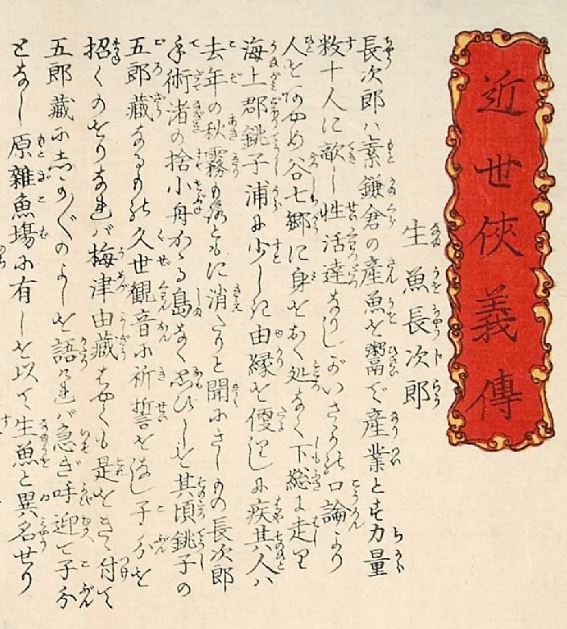 近世侠義傳
生魚長次郎
長次郎ハ素鎌倉の産魚を鬻で産業とす力量
数十人に敵し性活達なりしがいさゝかの口論より
人をあやめ谷七郷に身をおく処なく下総に走り
海上郡銚子浦に少しき由縁を便りしに疾其人ハ
去年の秋霧も露ともに消たりと聞にさしもの長次郎
手術渚の捨小舟かゝる島なく思ひしを其頃銚子の
五郎蔵なるもの久世観音に祈誓をなし子分を
招くのをりなれバ梅津由蔵はやくも是をきゝ付て
五郎蔵にしか〴〵のよしを語れバ急ぎ呼迎て子分
となし原雑魚場に有しを以て生魚と異名せり